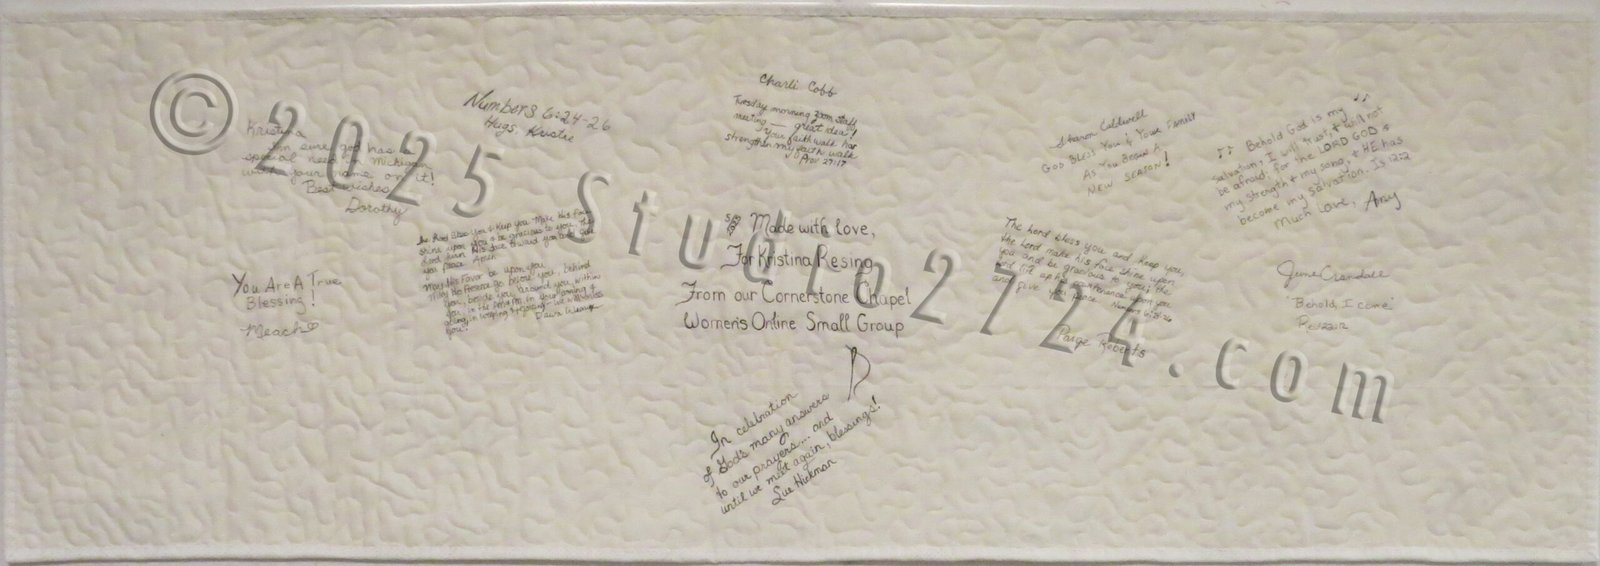 © 2025 Studio2724.com
Kristina
I'm sure god has a
special need in michigan
with your name on it!
Best wishes
Dorothy
Numbers 6:24-26
Hugs, Kristie
Charli Cobb
Tuesday morning zoom staff
meeting — great idea!
Your faith walk has
strengthen my faith walk
Prov 27:17
Sharon Caldwell
God Bless You & Your Family
As You Begin A
New Season!
♪♪ Behold God is my ♪♪
Salvation, I will trust, & will not
be afraid; for the LORD GOD is
my strength & my song, & HE has
become my salvation. Is 12:2
Much Love, Amy
You Are A True
Blessing!
Meach♡
The Lord Bless You & Keep you Make His Face
shine upon you & be gracious to you, The
Lord turn His face toward you and give
you peace Amen
May His Favor be upon you
May His Presence go before you, behind
you, beside you, around you, within
you in the
going, in weeping & rejoicing
you!
Made with love,
For Kristina Resing
From our Cornerstone Chapel
Women's Online Small Group
The Lord bless you, and keep you,
the Lord make his face shine upon
you and be gracious to you; the
Lord lift up his countenance upon you
and give you peace. Numbers 6:24-26
Paige Roberts
June Crandale
"Behold, I come"
In celebration
of God's many answers
to our prayers... and
until we meet again, blessings!
Sue Hickman